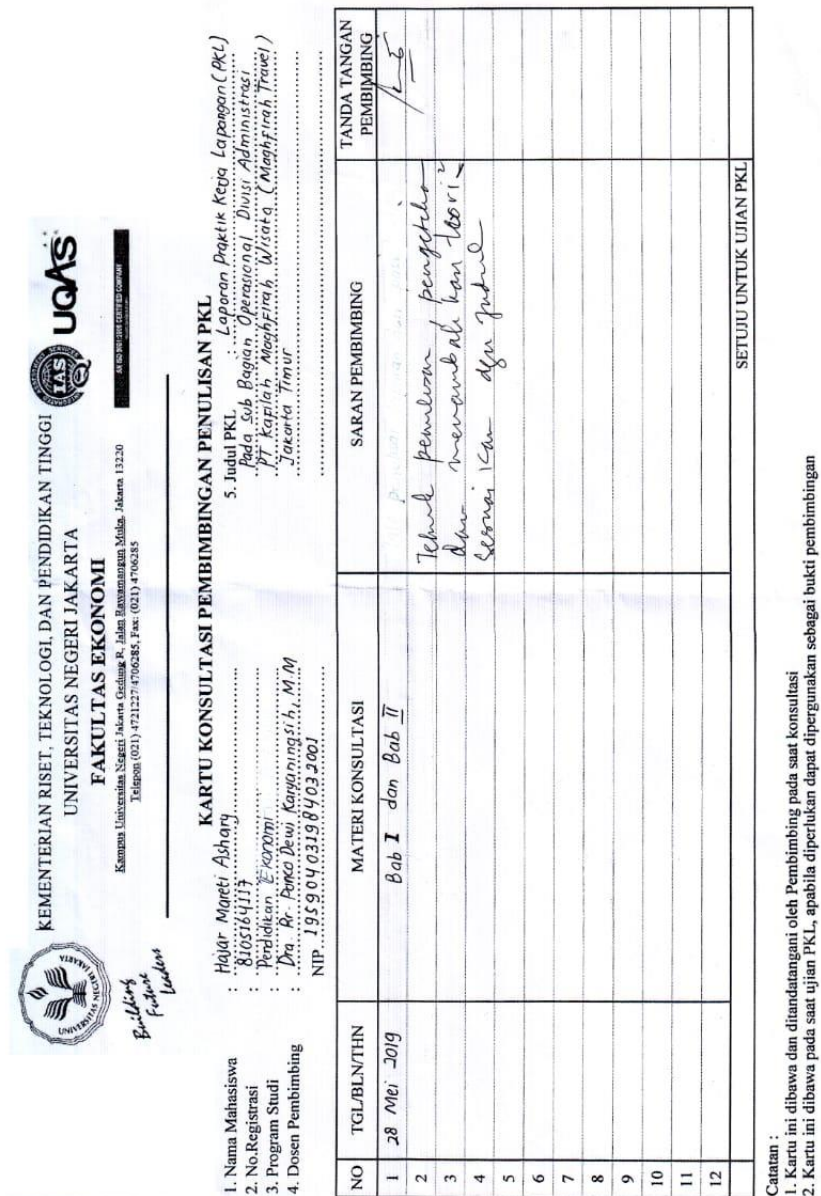 KEMENTERIAN RISET, TEKNOLOGI, DAN PENDIDIKAN TINGGI
UNIVERSITAS NEGERI JAKARTA
FAKULTAS EKONOMI
Kampus Universitas Negeri Jakarta Gedung R, Jalan Rawamangun Muka, Jakarta 13220
Telepon (021) 4721227/4706285, Fax: (021) 4706285
Building
Future
Leaders
IAS
UQAS
AN ISO 9001:2008 CERTIFIED COMPANY
KARTU KONSULTASI PEMBIMBINGAN PENULISAN PKL
1. Nama Mahasiswa : Hajar Mareti Ashary
2. No.Registrasi : 8105164117
3. Program Studi : Pendidikan Ekonomi
4. Dosen Pembimbing : Dra. Rr. Ponco Dewi Karyaningsih, M.M
NIP. 195904031984032001
5. Judul PKL : Laporan Praktik Kerja Lapangan (PKL)
Pada Sub Bagian Operasional Divisi Administrasi
PT Kafilah Maghfirah Wisata (Maghfirah Travel)
Jakarta Timur
NO TGL/BLN/THN MATERI KONSULTASI SARAN PEMBIMBING TANDA TANGAN PEMBIMBING
1 28 Mei 2019 Bab I dan Bab II
2 penulisan, pengetikan
3 dan menambahkan teori²
4 sesuaikan dgn judul
5
6
7
8
9
10
11
12
SETUJU UNTUK UJIAN PKL
Catatan :
1. Kartu ini dibawa dan ditandatangani oleh Pembimbing pada saat konsultasi
2. Kartu ini dibawa pada saat ujian PKL, apabila diperlukan dapat dipergunakan sebagai bukti pembimbingan